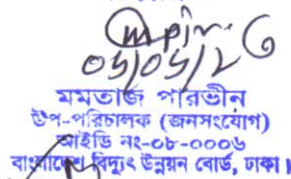 মমতাজ পারভীন
উপ-পরিচালক (জনসংযোগ)
আইডি নং-০৮-০০০৬
বাংলাদেশ বিদ্যুৎ উন্নয়ন বোর্ড, ঢাকা।